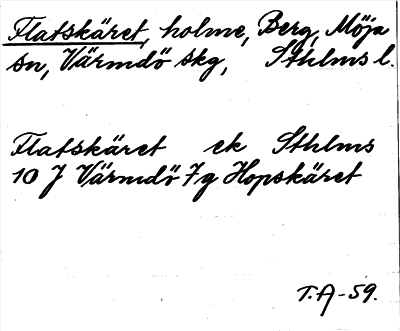 Flatskäret, holme, Berg, Möja
sn, Värmdö skg, Sthlms l.
Flatskäret ek Sthlms
10 J Värmdö 7g Hopskäret
T.A-59.